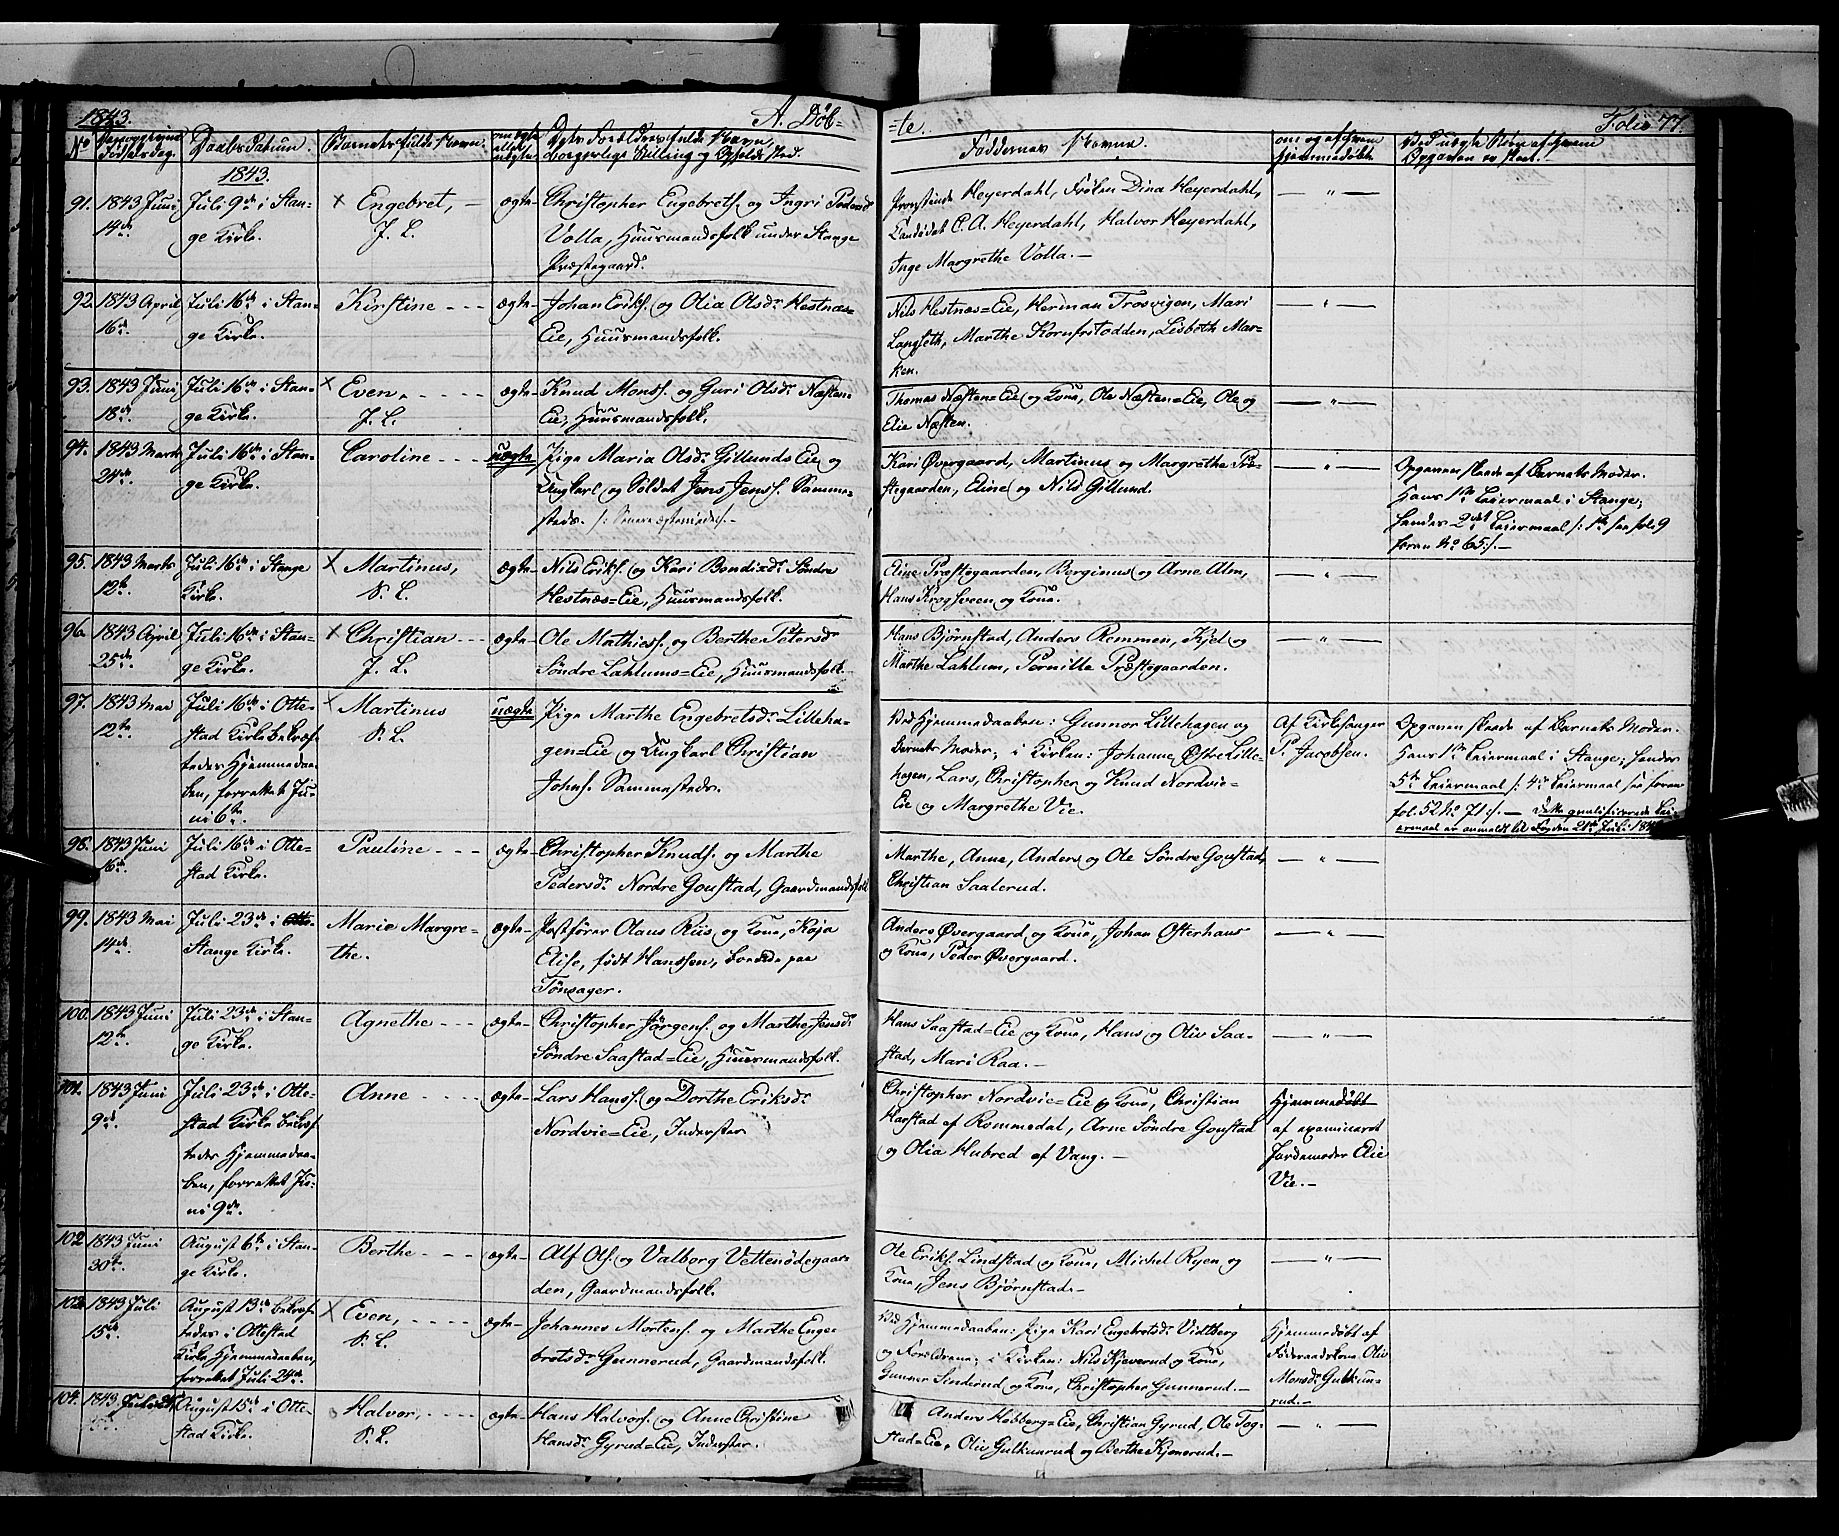 1843. A. Döb=
=te. Folio 77.
No Barnets Fulde Navn.
Faddernes Navne.
1843.
91. 1843 Juni 14de. Juli 9de i Stan=
ge Kirke.
× Engebret,
J. L.
ægte
Christopher Engebrets. og Ingri Pedersdr.
Volla, Huusmandsfolk under Stange
Præstegaard.
Provstinde Heyerdahl, Frölen Dina Heyerdahl,
Candidat C. A. Heyerdahl, Halvor Heyerdahl,
Inge Margrethe Volla.—
— „ —
92. 1843 April 16de. Juli 16de i Stan=
ge Kirke.
Kirstine
ægte
Johan Eriks. og Olia Olsdr. Hestnæs=
Eie, Huusmandsfolk.
Nils Hestnæs=Eie, Herman Trosvigen, Mari
Langseth, Marthe Kornfrstodden, Lisbeth Mar=
ken.
— „ —
93. 1843 Juni 18de. Juli 16de i Stan=
ge Kirke.
× Even,
J. L.
ægte
Knud Mons. og Guri Olsdr. Næsten=
Eie, Huusmandsfolk.
Thomas Næsten=Eie og Kone, Ole Næsten=Eie, Ole og
Elie Næsten.
— „ —
94. 1843 Marts 24de. Juli 16de i Stan=
ge Kirke.
Caroline
uægte
Pige Maria Olsdr. Gillunds Eie og
Ungkarl og Soldat Jens Jens. Samme=
steds.
Kari Övergaard, Martinus og Margrethe Præ=
stegaarden, Eline og Nils Gillund.
— „ —
Opgaven skeede af Barnets Moder.
Hans 1ste Leiermaal i Stange;
hendes 2det Leiermaal /: 1ste see fol. 9
foran No 65 :/. —
95. 1843 Marts 12te. Juli 16de i Stange
Kirke.
× Martinus,
S. L.
ægte
Nils Eriks. og Kari Bondixdr. Söndre
Hestnæs=Eie, Huusmandsfolk.
Eline Præstegaarden, Berginus og Arne Alm,
Hans Krogsveen og Kone.
— „ —
96. 1843 April 25de. Juli 16de i Stan=
ge Kirke.
× Christian
J. L.
ægte
Ole Mathiess. og Berthe Petersdr.
Söndre Lahlums=Eie, Huusmandsfolk.
Hans Björnstad, Anders Remmen, Kjel og
Marthe Lahlum, Pernille Præstegaarden.
— „ —
97. 1843 Mai 12te. Juli 16de i Otte=
stad Kirke bekræf=
tedes Hjemmedaa=
ben, forrettet Ju=
ni 6te.
× Martinus
S. L.
uægte
Pige Marthe Engebretsdr. Lilleha=
gen=Eie og Ungkarl Christian
Johns. Sammesteds.
Ved Hjemmedaaben: Gunnor Lillehagen og
Barnets Moder; i Kirken: Johanne Östre Lille=
hagen, Lars, Christopher og Knud Nordvie=
Eie og Margrethe Vie.
Af Kirkesanger
P. Jacobsen.
Opgaven skeede af Barnets Moder.
Hans 1ste Leiermaal i Stange; hendes
5te Leiermaal /: 4de Leiermaal see foran
fol. 52 No 71 :/. — Dette qualificerede Lei=
ermaal er anmeldt til Fogden 21de Juli 1843
98. 1843 Juni 16de. Juli 16de i Otte=
stad Kirke.
Pauline
ægte
Christopher Knuds. og Marthe
Pedersdr. Nordre Goustad, Gaardmandsfolk.
Marthe, Anne, Anders og Ole Söndre Goustad,
Christian Saalerud.
— „ —
99. 1843 Mai 14de. Juli 23de i Otte
Stange Kirke.
Marie Margre=
the.
ægte
Postförer Olaus Riis og Kone, Kaja
Elise, födt Hanssen, boende paa
Tönsager.
Anders Övergaard og Kone, Johan Osterhaus
og Kone, Peder Övergaard.
— „ —
100. 1843 Juni 12te. Juli 23de i Stan=
ge Kirke.
Agnethe
ægte
Christopher Jörgens. og Marthe Jensdr.
Söndre Saastad=Eie, Huusmandsfolk.
Hans Saastad=Eie og Kone, Hans og Oliv Saa=
stad, Mari Raa.—
— „ —
101. 1843 Juni 9de. Juli 23de i Otte=
stad Kirke bekræf=
tedes Hjemmedaa=
ben, forrettet Ju=
ni 9de.
Anne
ægte
Lars Hans. og Dorthe Eriksdr.
Nordvie=Eie, Inderster.
Christopher Nordvie=Eie og Kone, Christian
Harstad af Rommedal, Arne Söndre Goustad
og Olia Hubred af Vang.—
Hjemmedöbt
af examineret
Jordemoder Elie
Vie.—
102. 1843 Juni 30te. August 6te i Stan=
ge Kirke.
Berthe
ægte
Alf Ols. og Valborg Vettenödegaar=
den, Gaardmandsfolk.
Ole Eriks. Lindstad og Kone, Michel Ryen og
Kone, Jens Björnstad.—
— „ —
103. 1843 Juli 15de. August 13de bekræf=
tedes i Ottestad
Kirke Hjemmedaaben,
forrettet Juli 24de.
× Even,
S. L.
ægte
Johannes Mortens. og Marthe Enge=
bretsdr. Gunnerud, Gaardmandsfolk.
Ved Hjemmedaaben: Pige Kari Engebretsdr. Vidtberg
og Forældrene; i Kirken: Nils Kjeverud og Kone,
Gunner Sinderud og Kone, Christopher Gunnerud.—
Hjemmedöbt af
Föderaadskone Oliv
Monsdr. Gulkun=
rud.—
104. 1843 Juli August 15de i Otte=
stad Kirke.
Halvor,
S. L.
ægte
Hans Halvors. og Anne Christine
Hansdr. Gyrud=Eie, Inderster.
Anders Hobberg=Eie, Christian Gyrud, Ole Tog=
stad=Eie, Oliv Gulkunrud og Berthe Kjonerud.—
— „ —